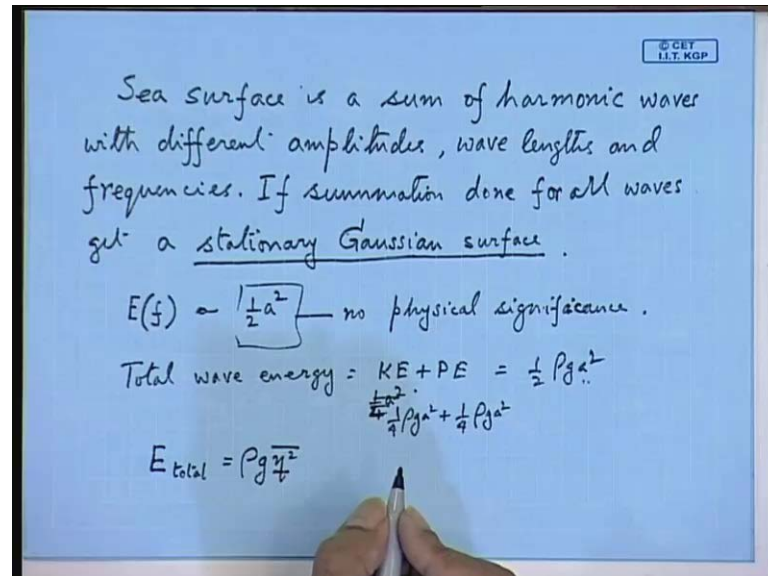 © CET
I.I.T. KGP
Sea surface is a sum of harmonic waves
with different amplitudes, wave lengths and
frequencies. If summation done for all waves
get a stationary Gaussian surface.
E(f) ~ ½a² — no physical significance.
Total wave energy = KE + PE = ½ ρga²
¼ρga² + ¼ρga²
E total = ρg η̅²